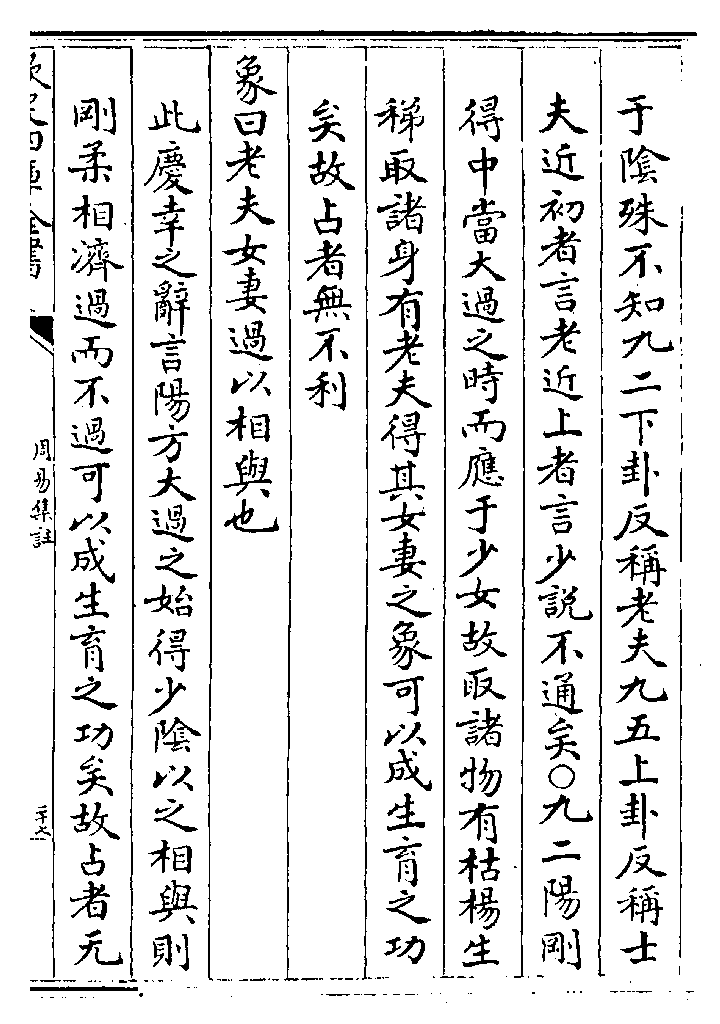 于陰殊不知九二下卦反稱老夫九五上卦反稱士
夫近初者言老近上者言少說不通矣〇九二陽剛
得中當大過之時而應于少女故取諸物有枯楊生
稊取諸身有老夫得其女妻之象可以成生育之功
矣故占者無不利
象曰老夫女妻過以相與也
此慶幸之辭言陽方大過之始得少陰以之相與則
剛柔相濟過而不過可以成生育之功矣故占者无
欽定四庫全書
周易集註
二十七